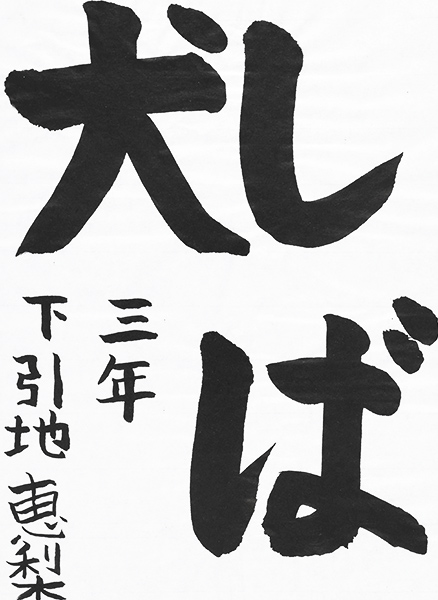 しば
犬
三年
下引地 恵梨